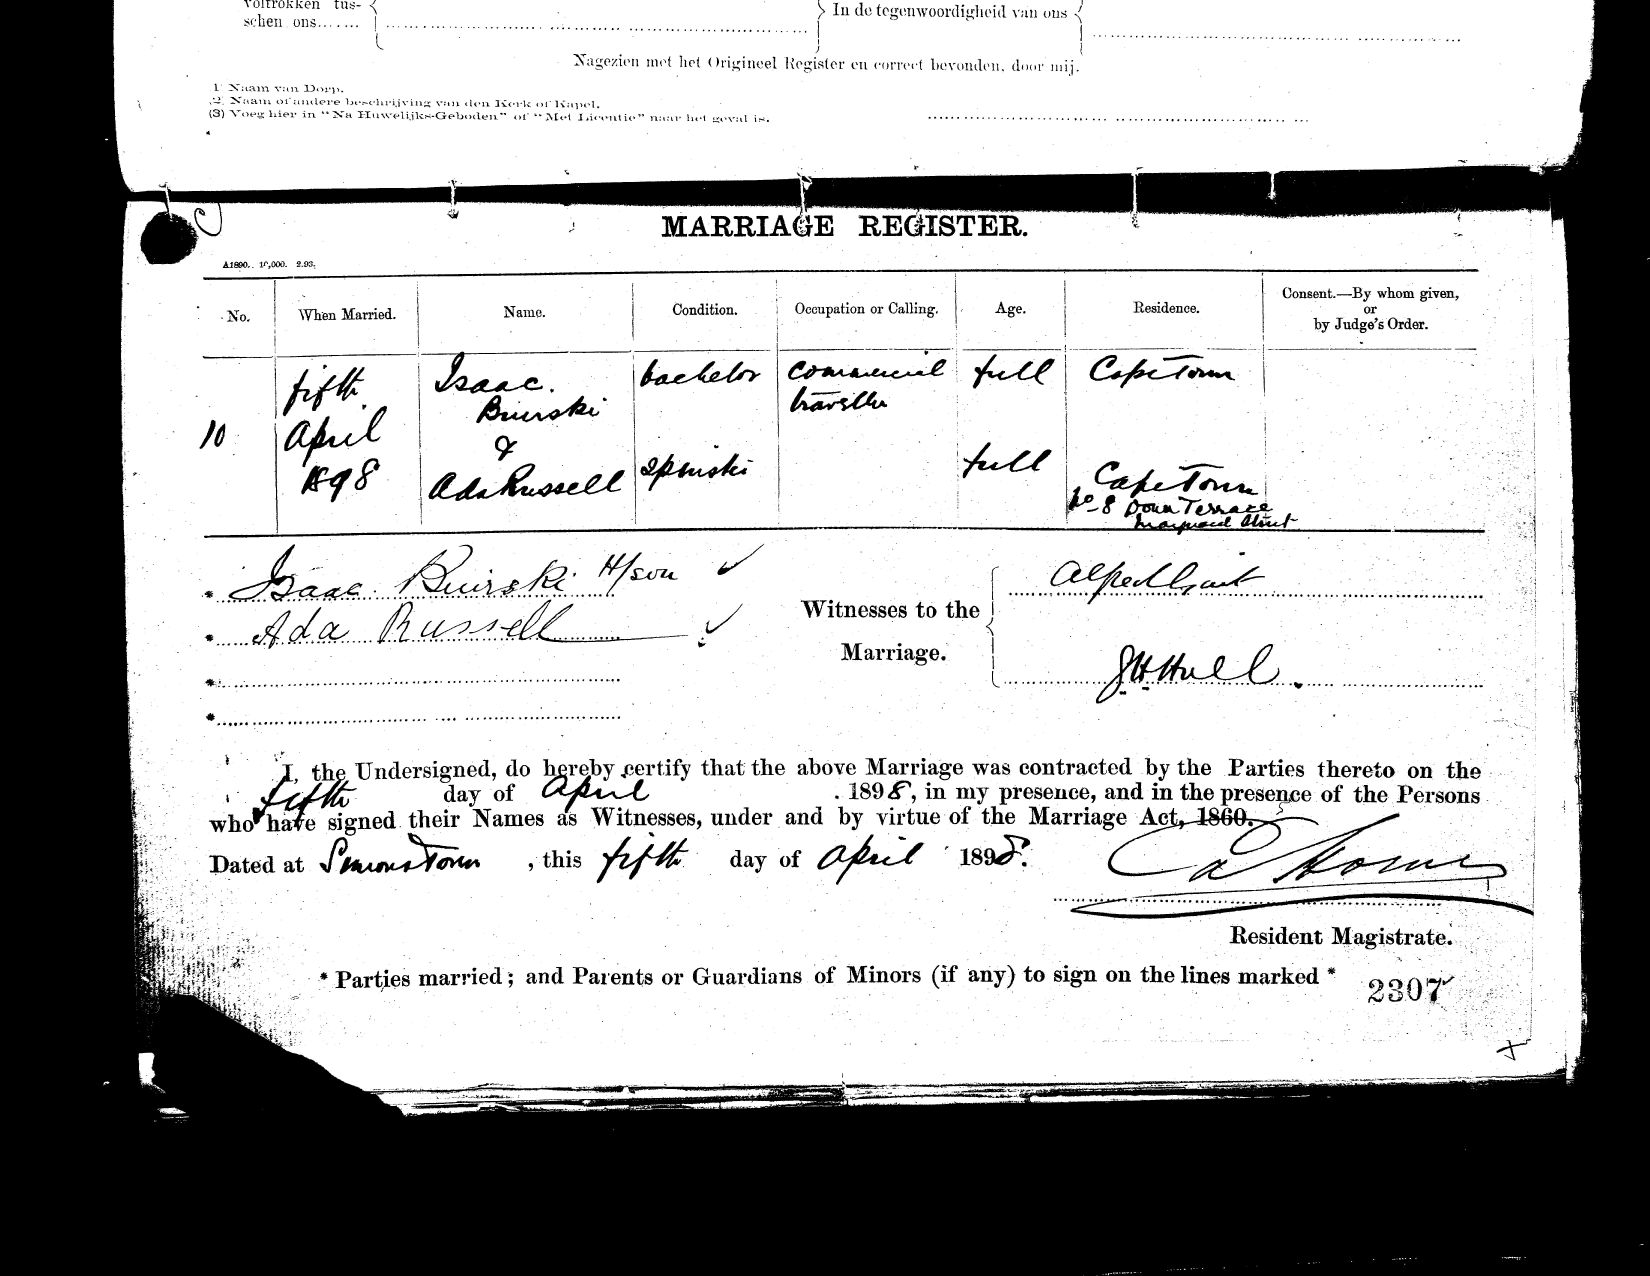 voltrokken tus-
schen ons.......
In de tegenwoordigheid van ons
Nagezien met het Origineel Register en correct bevonden, door mij.
1 Naam van Dorp.
2. Naam of andere beschrijving van den Kerk of Kapel.
(3) Voeg hier in "Na Huwelijks-Geboden" of "Met Licentie" naar het geval is.
MARRIAGE REGISTER.
A1890. 10,000. 2.93.
No. When Married. Name. Condition. Occupation or Calling. Age. Residence. Consent.—By whom given, or by Judge's Order.
fifth Isaac. bachelor commercial full Cape Town
Buirski traveller
10 April &
1898 Ada Russell spinster full Cape Town
No 8 Terrace
Street
* Isaac Buirski H/son ✓
* Ada Russell ✓
*
*
Witnesses to the
Marriage.
Alfred
J H Hull.
I, the Undersigned, do hereby certify that the above Marriage was contracted by the Parties thereto on the
fifth day of April 1898, in my presence, and in the presence of the Persons
who have signed their Names as Witnesses, under and by virtue of the Marriage Act, 1860.
Dated at Simons Town, this fifth day of April 1898.
Resident Magistrate.
* Parties married; and Parents or Guardians of Minors (if any) to sign on the lines marked *
2307